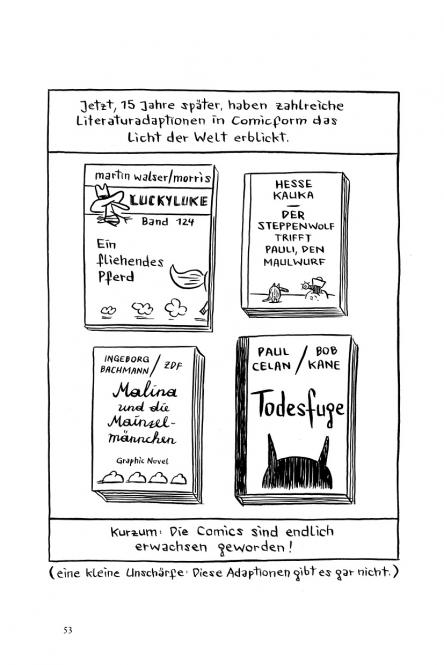 Jetzt, 15 Jahre später, haben zahlreiche
Literaturadaptionen in Comicform das
Licht der Welt erblickt.
martin walser/morris
LUCKY LUKE
Band 124
Ein
fliehendes
Pferd
HESSE
KAUKA
—
DER
STEPPENWOLF
TRIFFT
PAULI, DEN
MAULWURF
INGEBORG
BACHMANN / ZDF
Malina
und die
Mainzel-
männchen
Graphic Novel
PAUL / BOB
CELAN / KANE
Todesfuge
Kurzum: Die Comics sind endlich
erwachsen geworden!
(eine kleine Unschärfe: Diese Adaptionen gibt es gar nicht.)
53